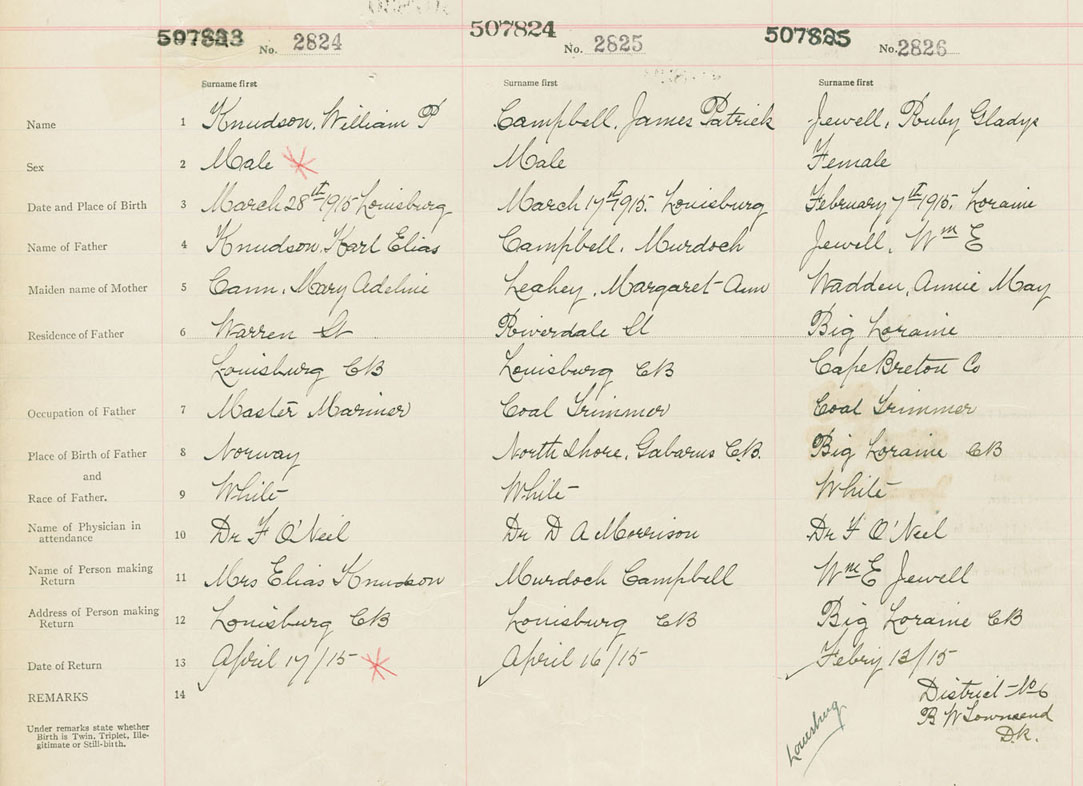 507823 No. 2824 507824 No. 2825 507825 No. 2826
Surname first Surname first Surname first
Name 1 Knudson, William P Campbell, James Patrick Jewell, Ruby Gladys
Sex 2 Male Male Female
Date and Place of Birth 3 March 28th 1915 Louisburg March 17th 1915. Louisburg February 7th 1915. Loraine
Name of Father 4 Knudson, Karl Elias Campbell, Murdoch Jewell, Wm E
Maiden name of Mother 5 Cann, Mary Adeline Leahey, Margaret Ann Wadden, Annie May
Residence of Father 6 Warren St Riverdale St Big Loraine
Louisburg CB Louisburg CB Cape Breton Co
Occupation of Father 7 Master Mariner Coal Trimmer Coal Trimmer
Place of Birth of Father 8 Norway North Shore, Gabarus C.B. Big Loraine CB
and
Race of Father. 9 White White White
Name of Physician in
attendance 10 Dr F O'Neil Dr D A Morrison Dr F O'Neil
Name of Person making
Return 11 Mrs Elias Knudson Murdoch Campbell Wm E Jewell
Address of Person making
Return 12 Louisburg CB Louisburg CB Big Loraine CB
Date of Return 13 April 17/15 April 16/15 Febry 13/15
REMARKS 14 District No 6
Under remarks state whether
Birth is Twin, Triplet, Ille-
gitimate or Still-birth.
B W Townsend
D.R.
Louisburg